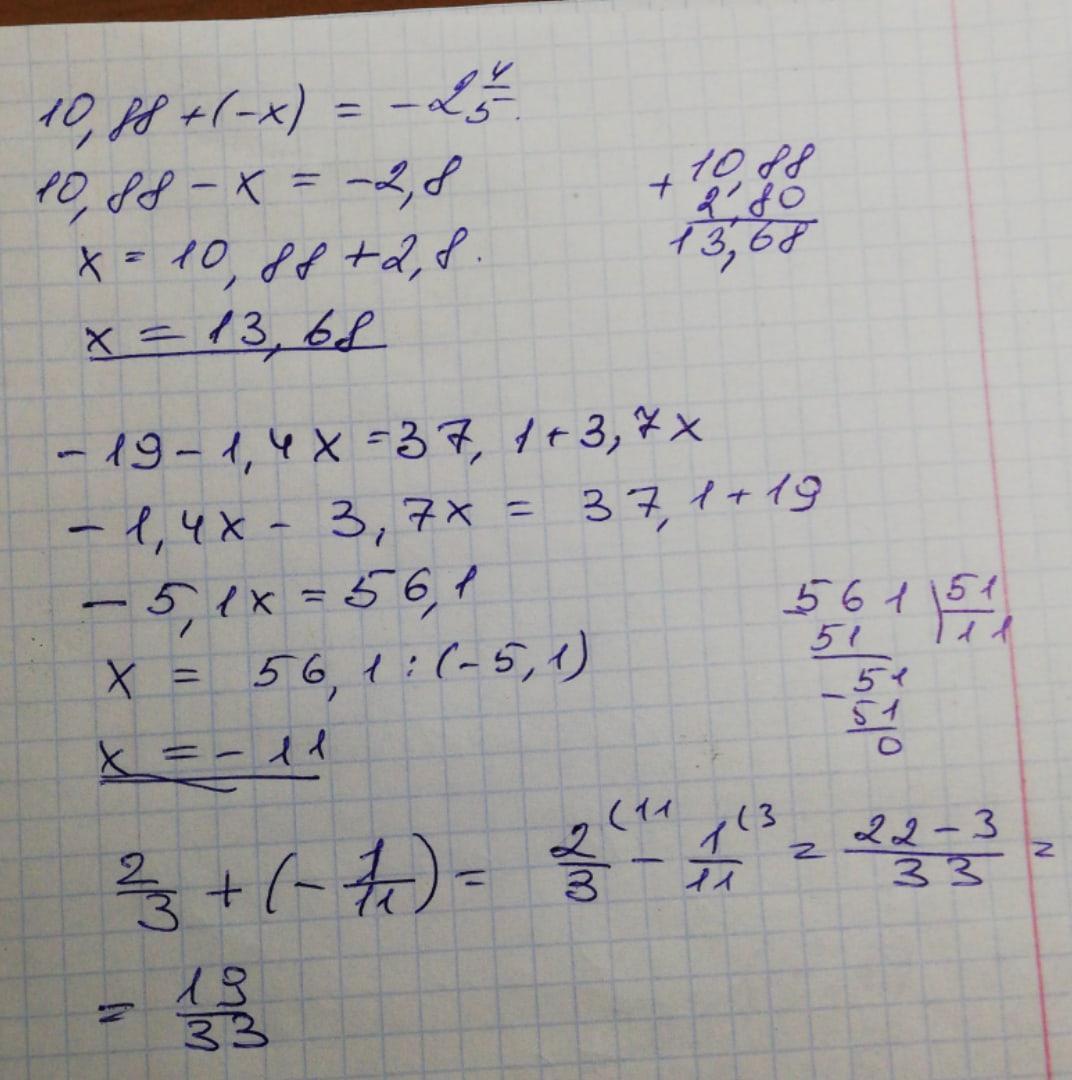 10,88 + (-x) = -2 4/5.
10,88 - x = -2,8
x = 10,88 + 2,8.
x = 13,68
+ 10,88
2,80
13,68
-19 - 1,4x = 37,1 + 3,7x
-1,4x - 3,7x = 37,1 + 19
-5,1x = 56,1
x = 56,1 : (-5,1)
x = -11
561 | 51
51 | 11
- 51
51
0
2/3 + (- 1/11) = 2/3 (11 - 1/11 (3 = 22 - 3/33 =
= 19/33